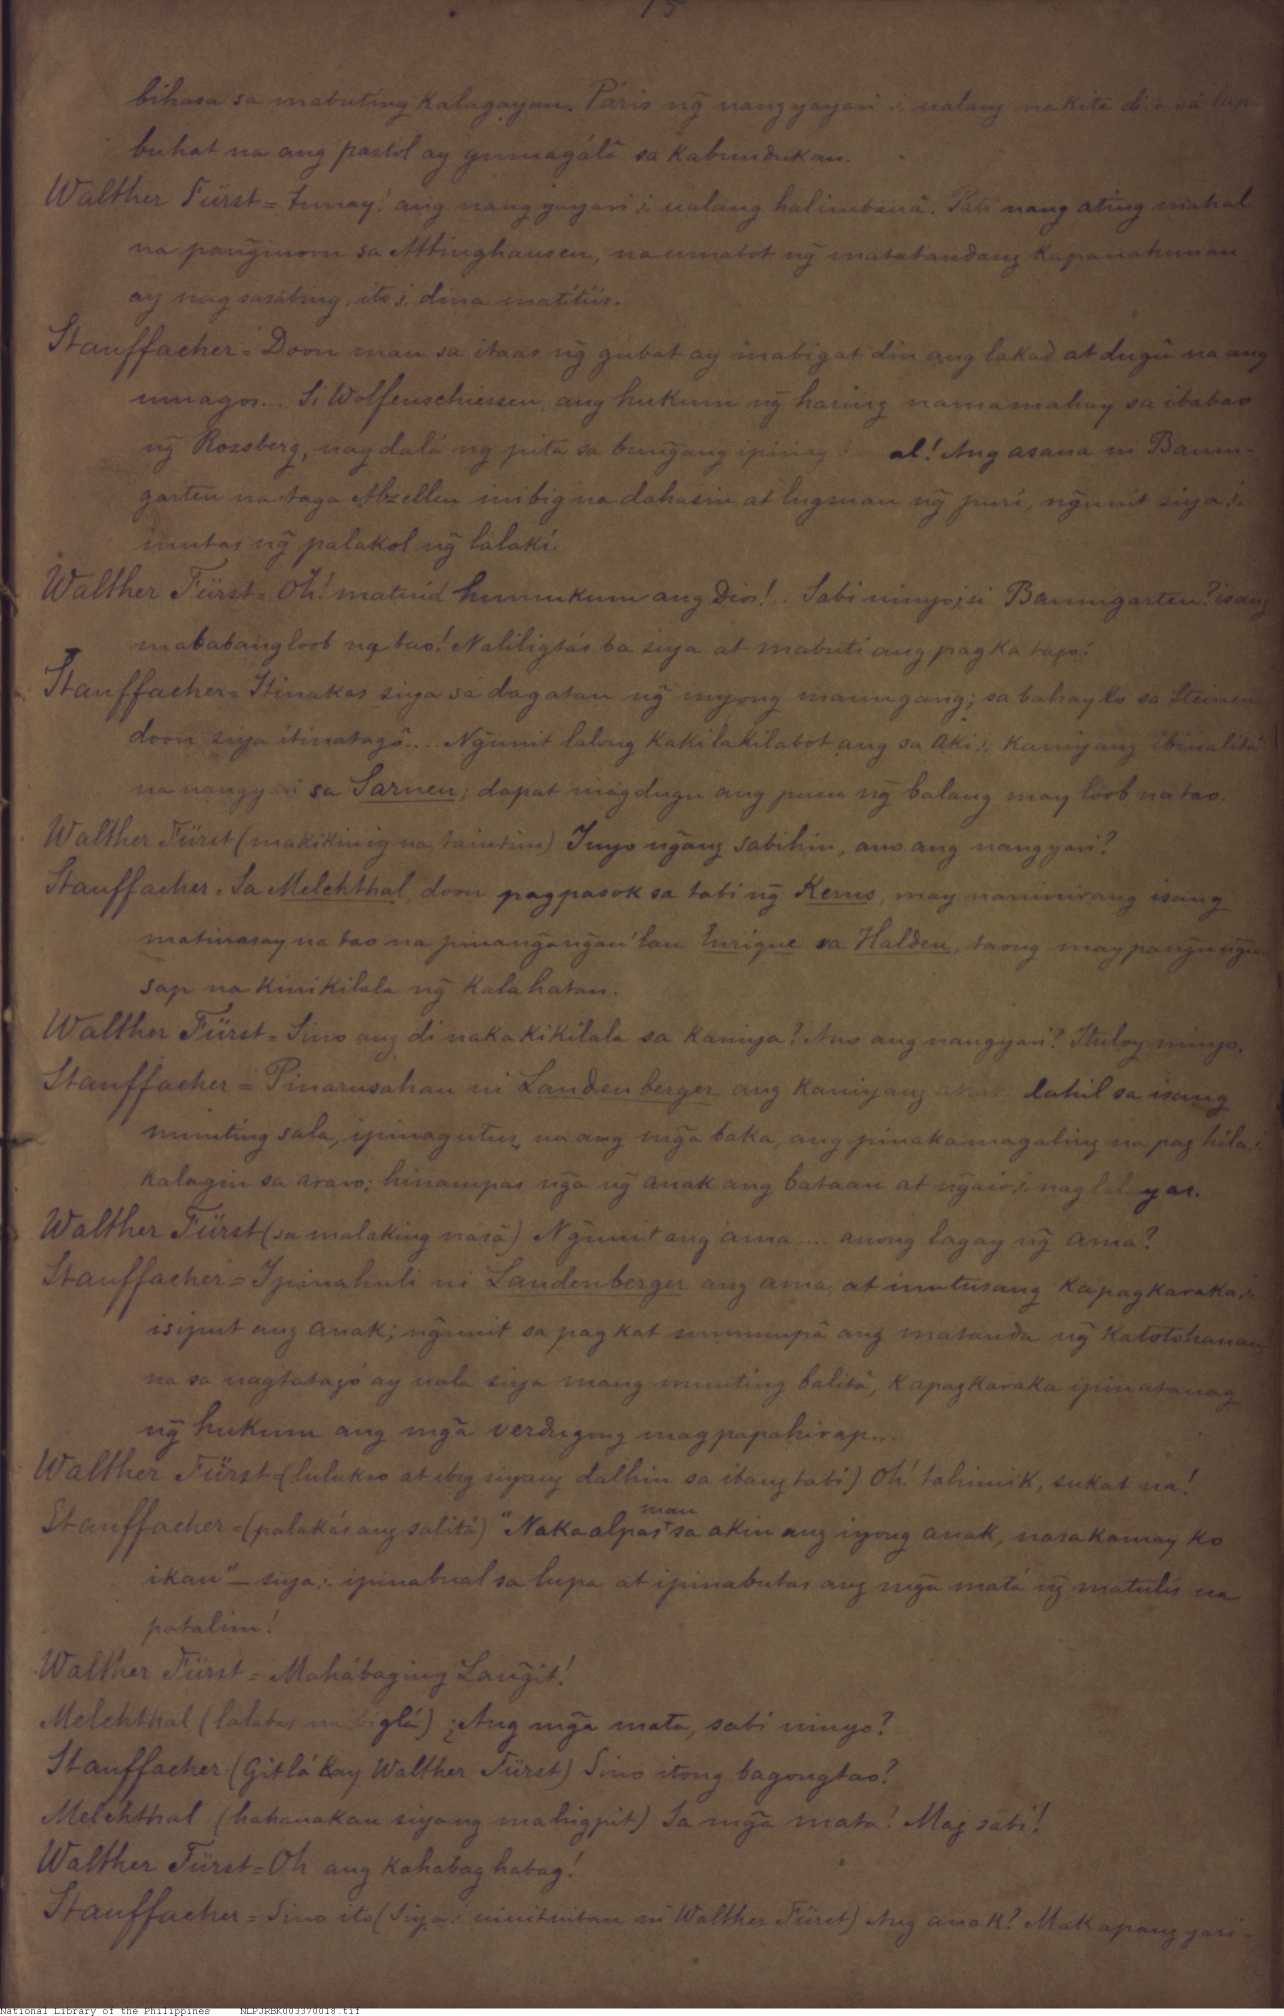 15
bihasa sa mabuting kalagayan. Páris ng̃ nangyayari i ualang nakita
buhat na ang pastol ay gumagálâ sa kabundukan.
Walther Fürst = Tunay! ang nangyayari i ualang halimbauâ. Pati nang ating mahal
na pang̃inoon sa Attinghausen, na umabot ng̃ matatandang kapanahunan
ay nagsasábing, ito i, dina matítiis.
Stauffacher = Doon man sa itaas ng̃ gubat ay mabigat din ang lakad at dugû na ang
umagos... Si Wolfenschiessen, ang hukum ng̃ haring namamahay sa ibabao
ng̃ Rossberg, nagdalá ng pita sa bung̃ang al! Ang asaua ni Baum-
garten na taga Alzellen inibig na dahasin at lugsuan ng̃ puri, ng̃unit siya, i,
inutas ng̃ palakol ng̃ lalaki.
Walther Fürst = Oh! matuid humukum ang Dios!.. Sabi ninyo, i, si Baumgarten? isang
mababangloob na tao! Naliligtás ba siya at mabuti ang pagka tago?
Stauffacher = Itinakas siya sa dagatan ng̃ inyong manugang; sa bahay ko sa Steinen
doon siya itinatagô.... Ng̃unit lalong kakilakilabot ang sa aki, i, kaniyang ibinalita
na nangyari sa Sarnen; dapat magdugu ang puso ng̃ balang may loob na tao.
Walther Fürst (makikinig na taimtim) Inyo ng̃ang sabihin, ano ang nangyari?
Stauffacher = Sa Melchthal, doon pagpasok sa tabi ng̃ Kerns, may naninirang isang
matinasay na tao na pinang̃ang̃an'lan Enrique sa Halden, taong may pang̃ung̃u-
sap na kinikilala ng̃ kalahatan.
Walther Fürst = Sino ang di nakakikilala sa kaniya? Ano ang nangyari? Ituloy ninyo.
Stauffacher = Pinarusahan ni Landenberger ang kaniyang anak dahil sa isang
munting sala, ipinagutus na ang mg̃a baka, ang pinakamagaling na pag hila, i
kalagin sa araro; hinampas ng̃a ng̃ anak ang bataan at ng̃aio, i, naglalayas.
Walther Fürst (sa malaking nasâ) Ng̃unit ang ama .... anong lagay ng̃ ama?
Stauffacher = Ipinahuli ni Landenberger ang ama, at inutusang kapagkaraka, i
isiput ang anak; ng̃unit sa pagkat sumumpâ ang matanda ng̃ katotohanang
na sa nagtatagó ay uala siya mang munting balitâ, kapagkaraka ipinatauag
ng̃ hukum ang mg̃a verdugong magpapahirap...
Walther Fürst = (lulukso at ibig siyang dalhin sa ibang tabi) Oh! tahimik, sukat na!
Stauffacher = (palakás ang salitâ) "Nakaalpas man sa akin ang iyong anak, nasa kamay ko
ikau" — siya, i, ipinabual sa lupa at ipinabutas ang mg̃a matá ng̃ matulis na
patalim!
Walther Fürst = Mahábaging Lang̃it!
Melchthal (lalabas na biglá) ¿Ang mg̃a mata, sabi ninyo?
Stauffacher (Gitlá kay Walther Fürst) Sino itong bagongtao?
Melchthal (hahauakan siyang mahigpit) Sa mg̃a mata! Mag sabi!
Walther Fürst = Oh ang kahabaghabag!
Stauffacher = Sino ito (Siya, i, ni Walther Fürst) Ang anak? Makapangyari-
National Library of the Philippines NLPJRBK003370018.tif